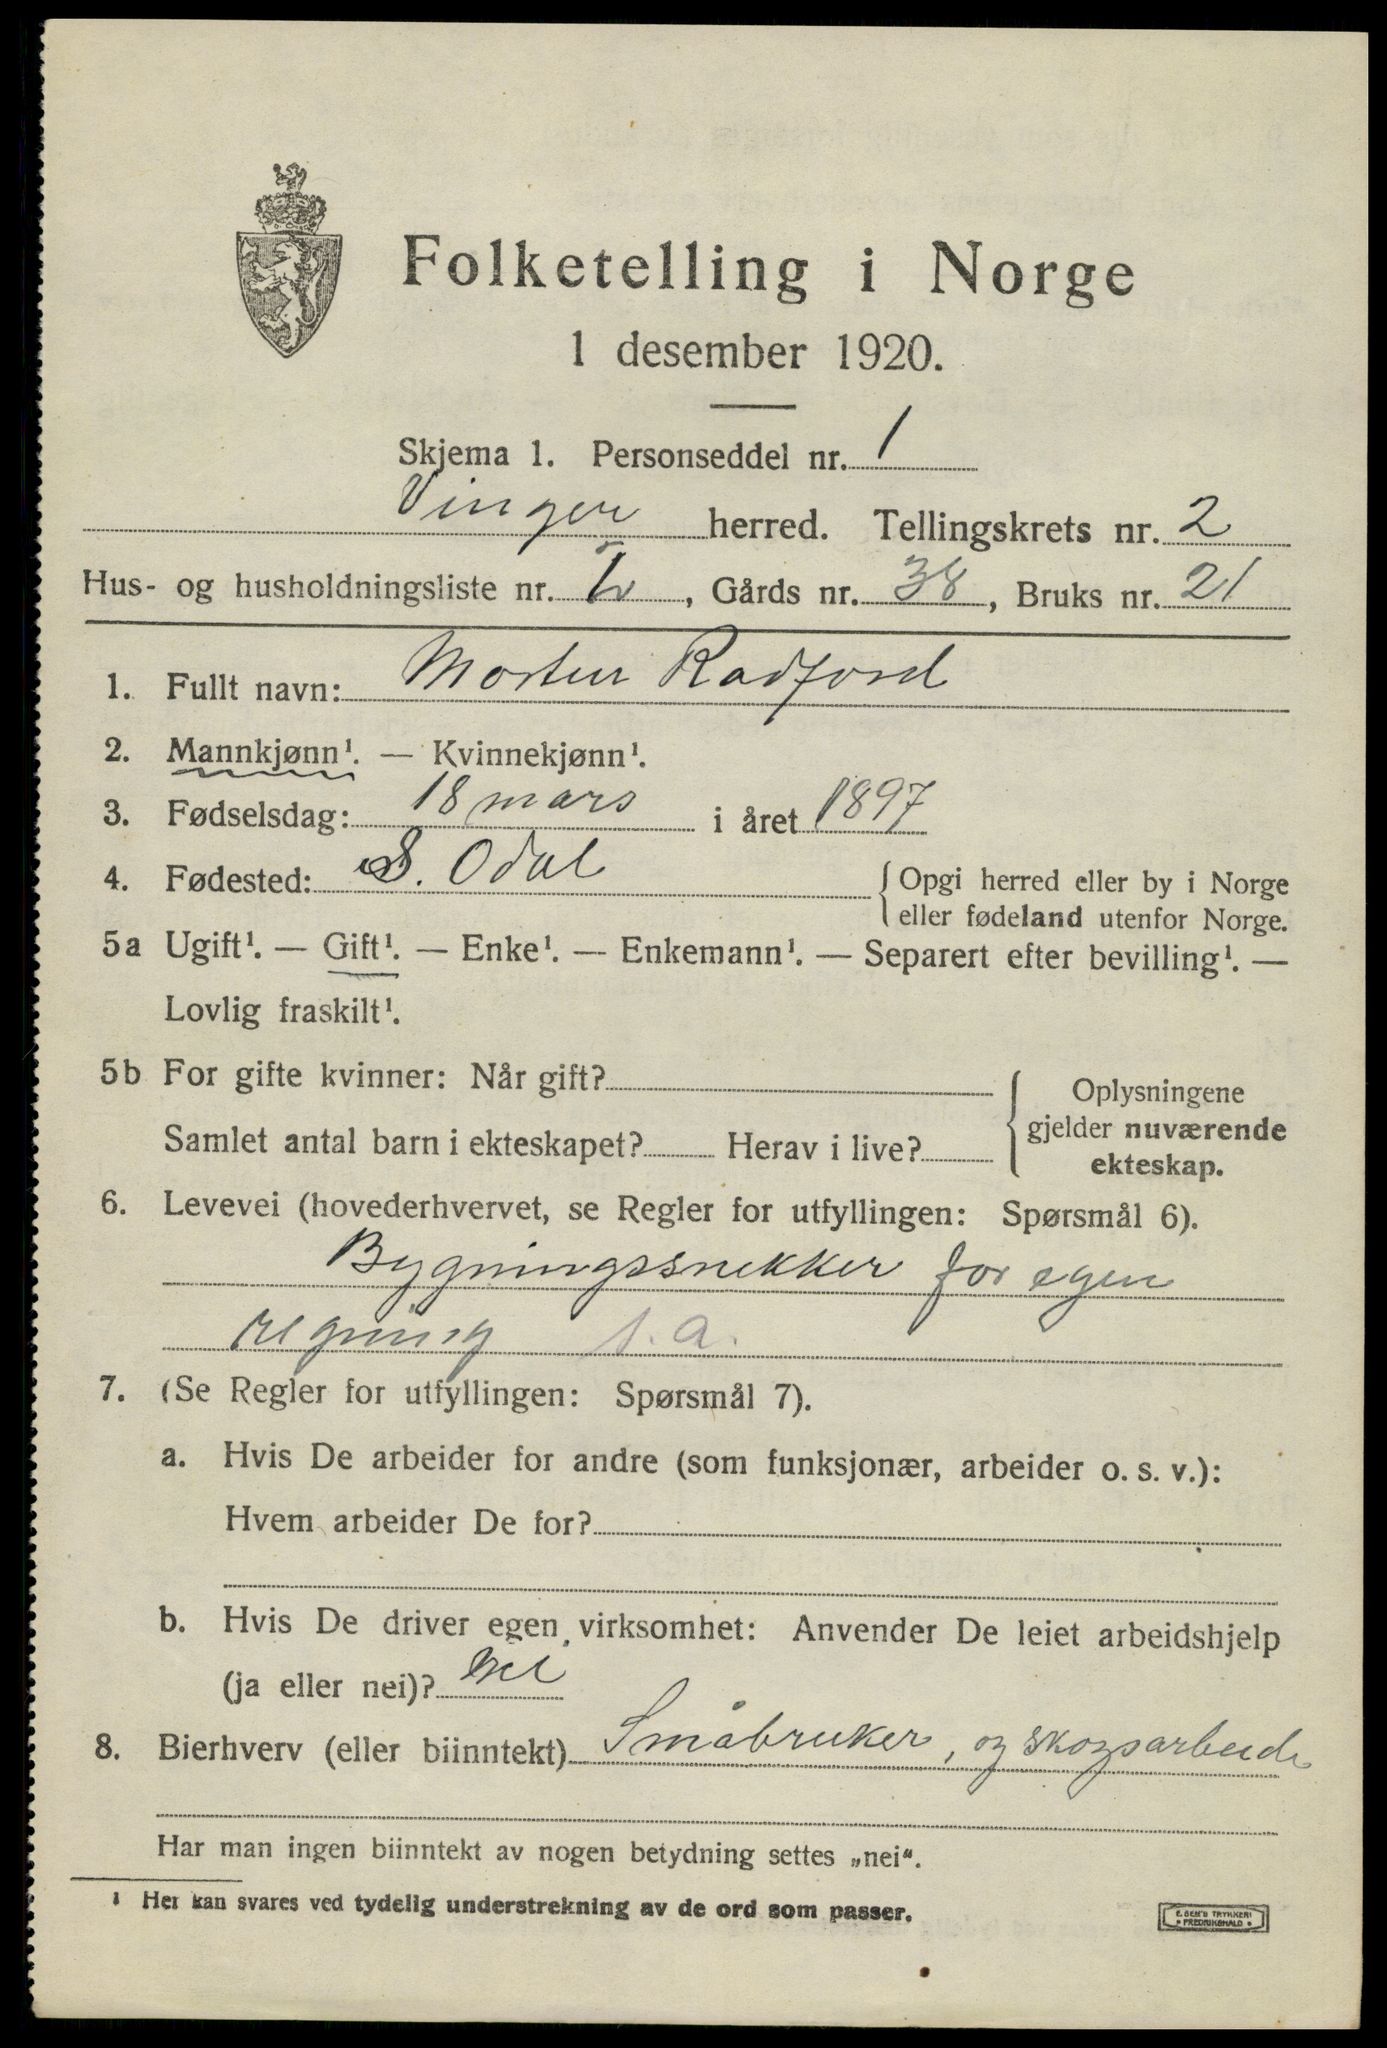 Folketelling i Norge
1 desember 1920.
Skjema 1. Personseddel nr. 1
Vinger herred. Tellingskrets nr. 2
Hus- og husholdningsliste nr. , Gårds nr. 38, Bruks nr. 21
1. Fullt navn: Morten Radford
2. Mannkjønn¹. — Kvinnekjønn¹.
3. Fødselsdag: 18 mars i året 1897
4. Fødested: S. Odal { Opgi herred eller by i Norge
eller fødeland utenfor Norge.
5a Ugift¹. — Gift¹. — Enke¹. — Enkemann¹. — Separert efter bevilling¹. —
Lovlig fraskilt¹.
5b For gifte kvinner: Når gift? { Oplysningene
Samlet antal barn i ekteskapet? Herav i live? gjelder nuværende
ekteskap.
6. Levevei (hovederhvervet, se Regler for utfyllingen: Spørsmål 6).
Bygningssnekker for egen
regning s.a.
7. (Se Regler for utfyllingen: Spørsmål 7).
a. Hvis De arbeider for andre (som funksjonær, arbeider o. s. v.):
Hvem arbeider De for?
b. Hvis De driver egen virksomhet: Anvender De leiet arbeidshjelp
(ja eller nei)? Nei
8. Bierhverv (eller biinntekt) Småbruker, og skogsarbeide
Har man ingen biinntekt av nogen betydning settes „nei“.
¹ Her kan svares ved tydelig understrekning av de ord som passer.
E. SEM'S TRYKKERI
• FREDRIKSHALD •